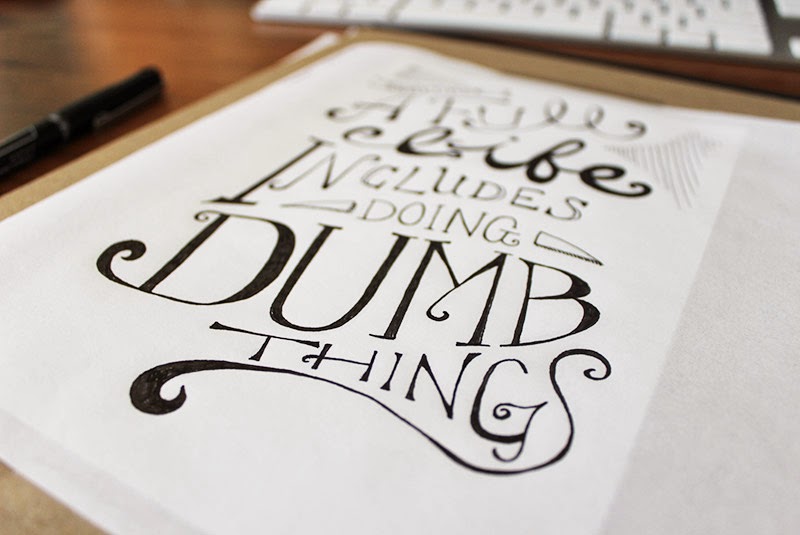 A Full
Life
INCLUDES
DOING
DUMB
THINGS